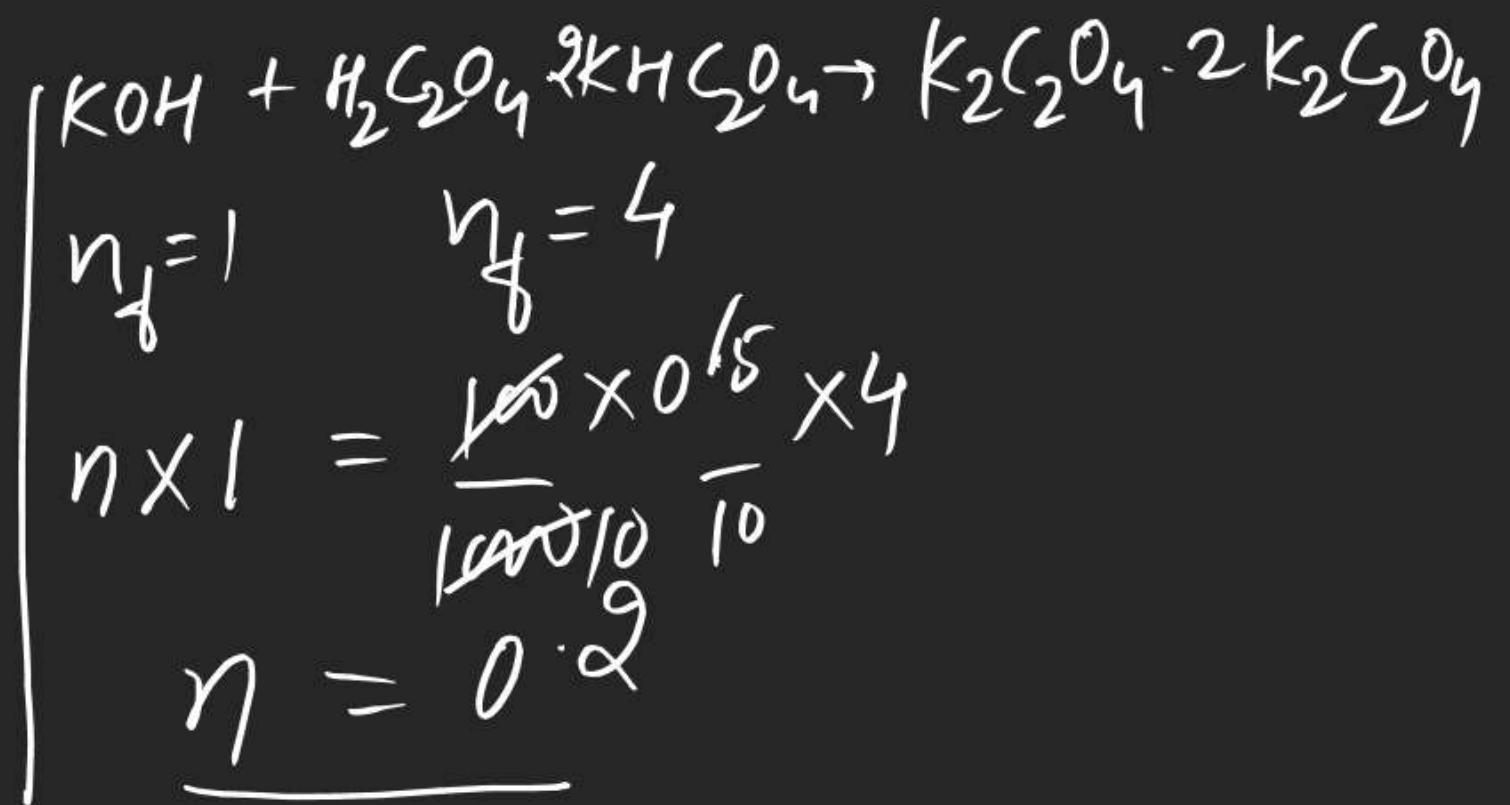 KOH + H₂C₂O₄ 2KHC₂O₄ → K₂C₂O₄ · 2K₂C₂O₄
n_f = 1 n_f = 4
n × 1 = 100/1000 10 × 0 15/10 × 4
n = 0.2